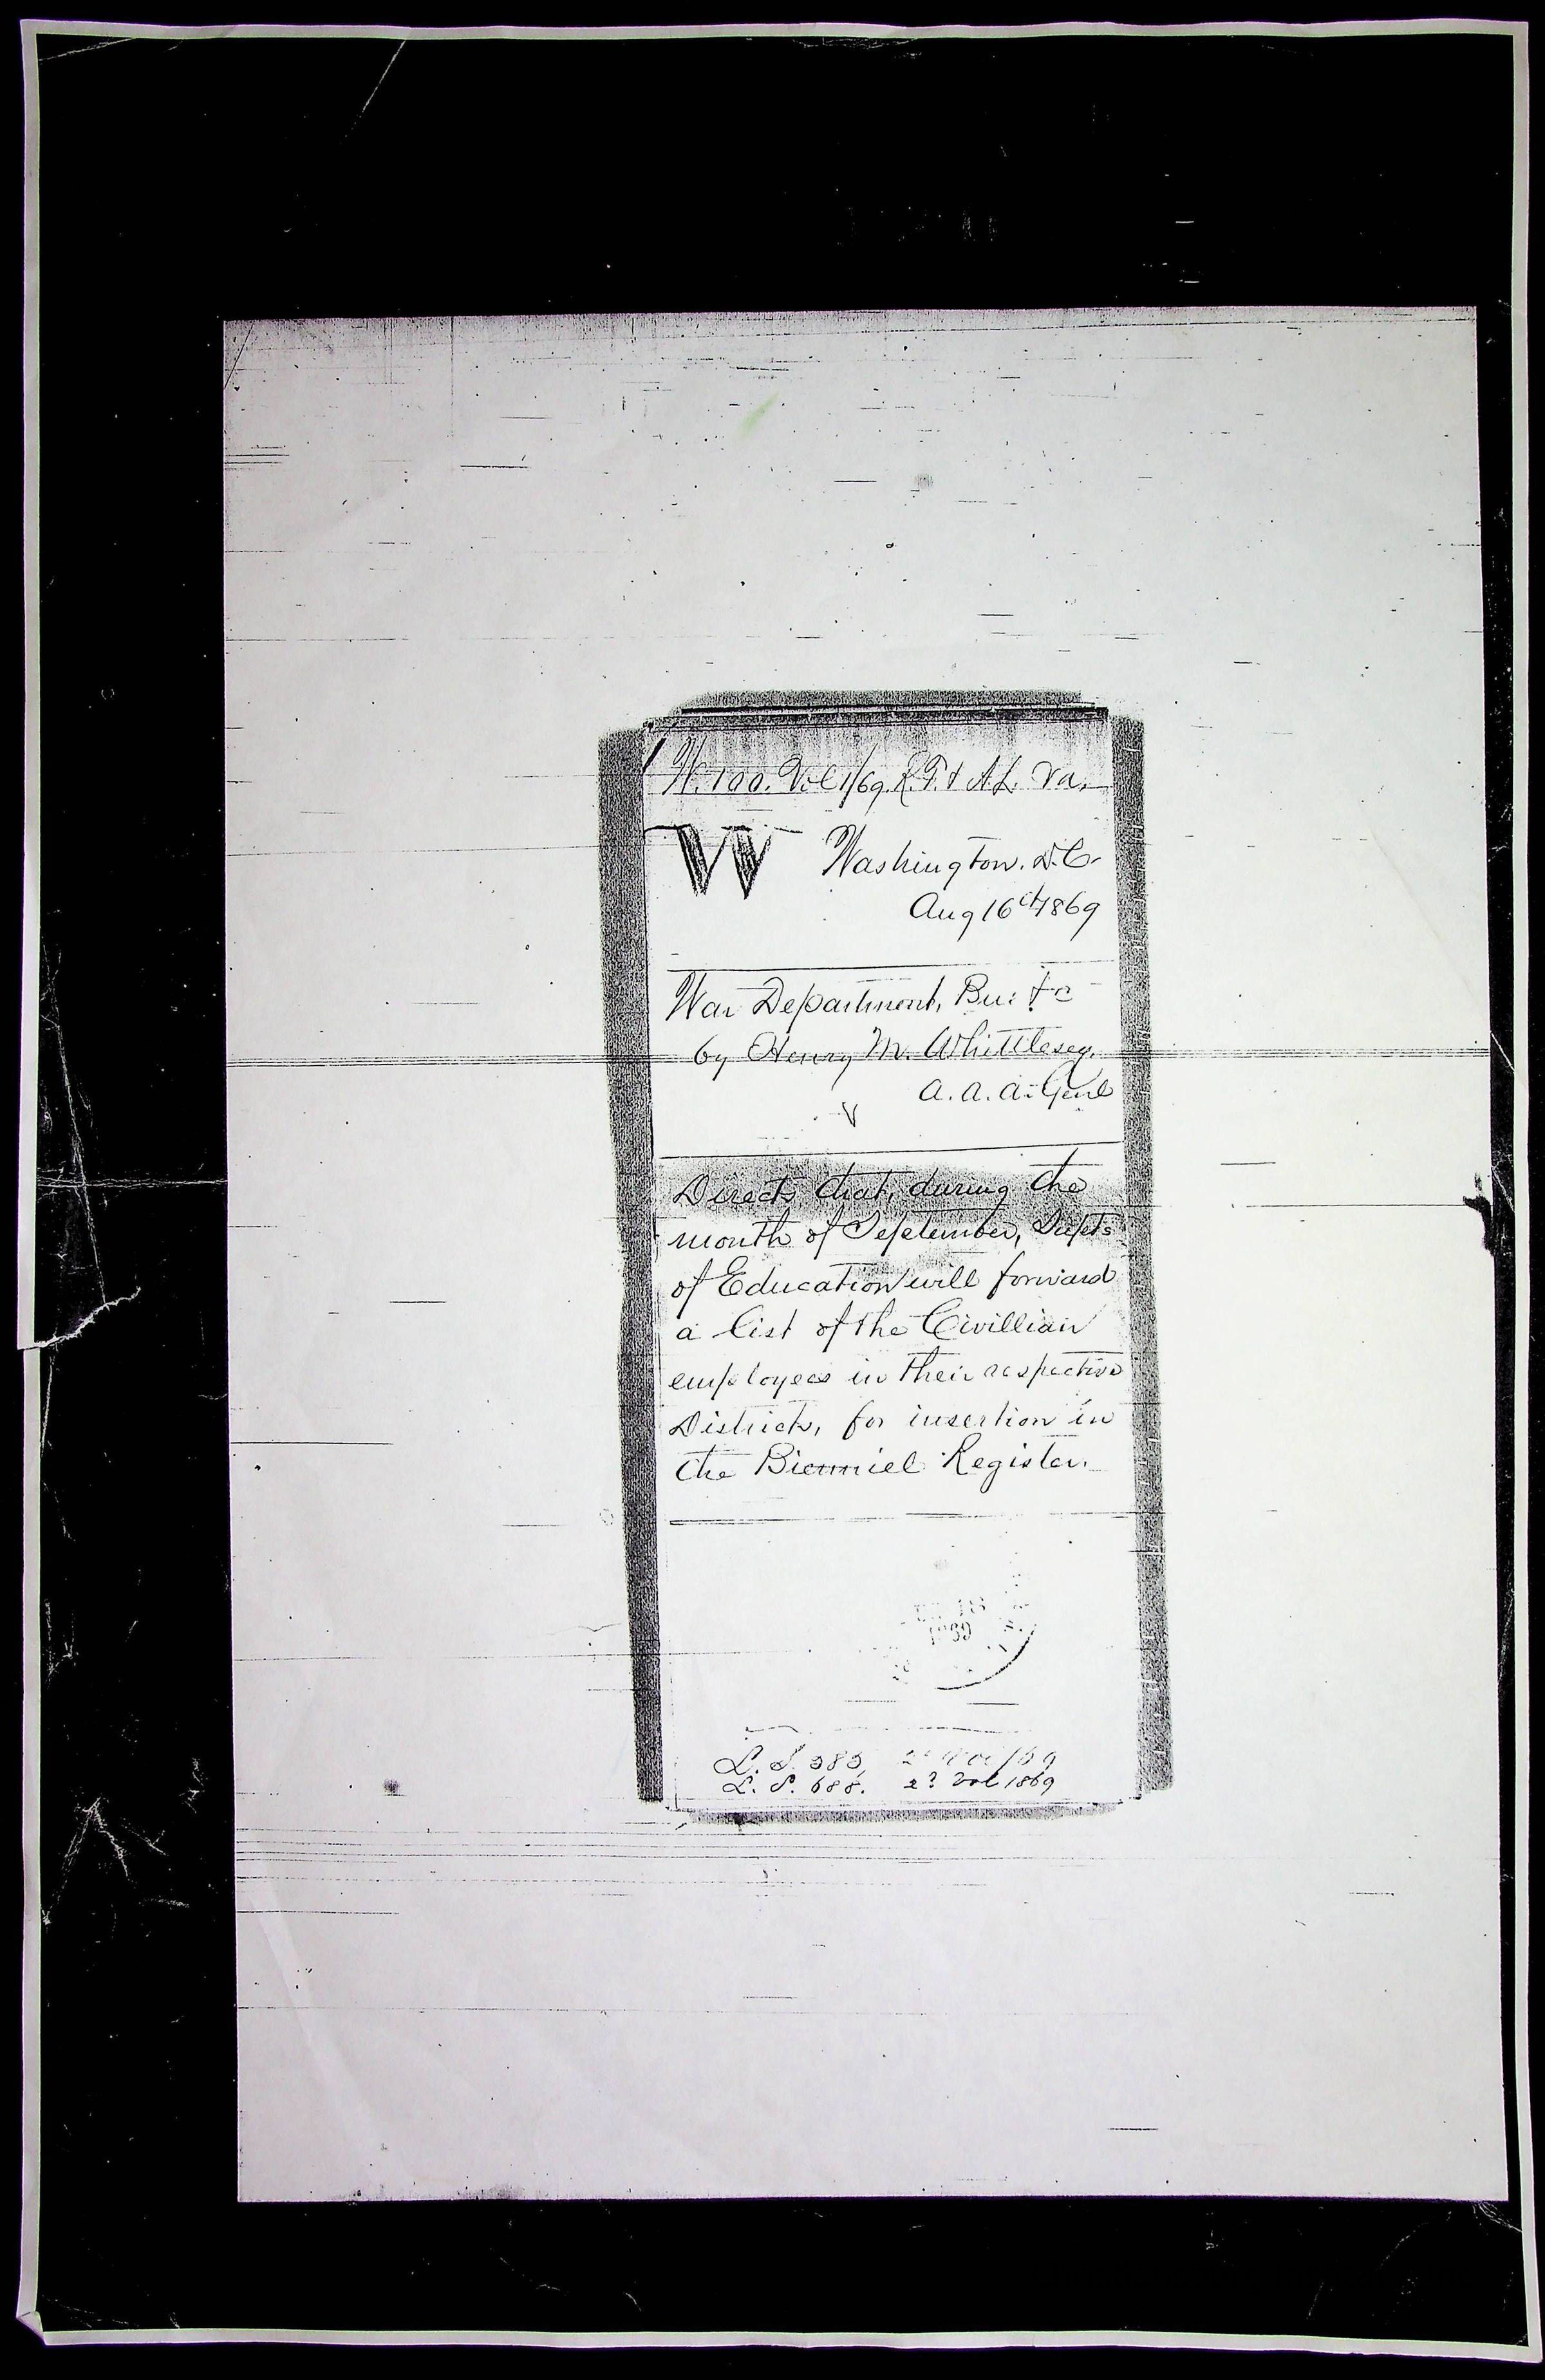 W. 100. Vol 1/69. R. F. & A. L. Va.
W Washington. D.C.
Aug 16th 1869
War Department, Bu: &c
by Henry M. Whittlesey,
A. A. A. Genl
Directs that, during the
month of September, Supts
of Education will forward
a list of the Civillian
employees in their respective
Districts, for insertion in
the Bienniel Register.
1869
L. S. 383,
L. S. 688. 2? Vol 1869